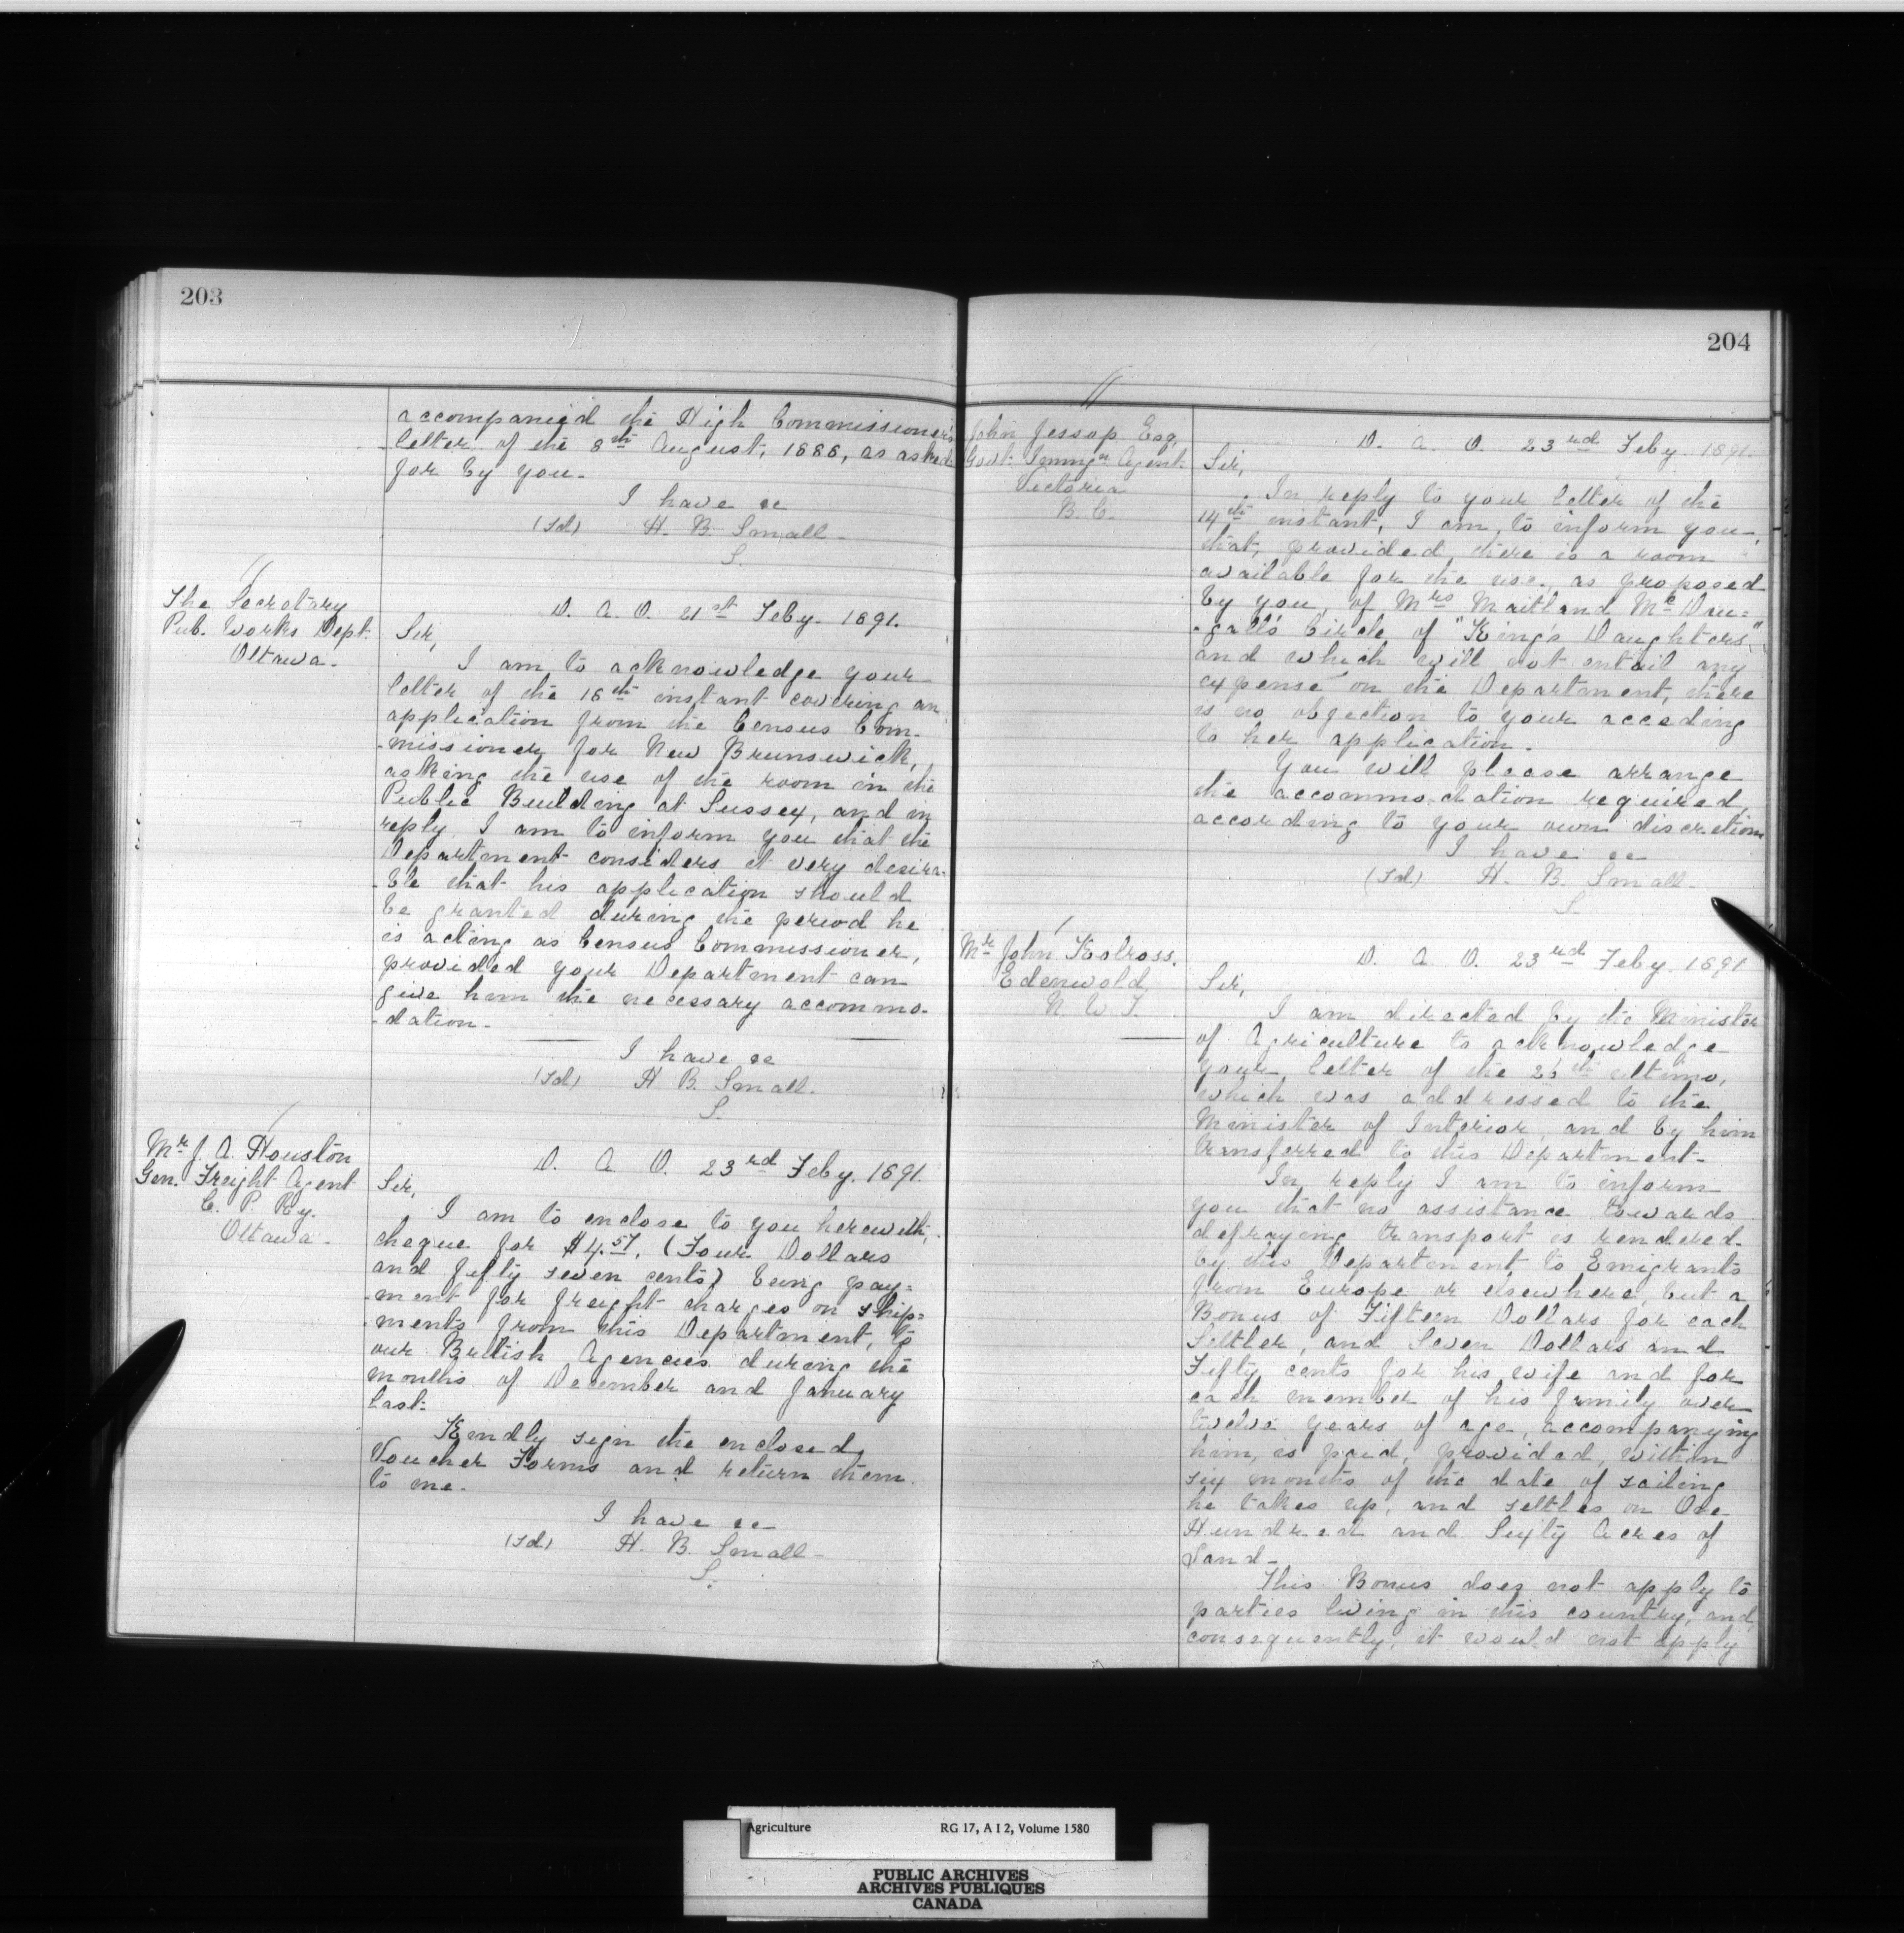 203
accompanied the High Commissioner's
letter of the 8th August, 1886, as asked
for by you.
I have &c
(Sd) H. B. Small.
S.
The Secretary
Pub. Works Dept.
Ottawa.
D. A. O. 21st Feby. 1891.
Sir,
I am to acknowledge your
letter of the 16th instant covering an
application from the Census Com-
-missioner for New Brunswick,
asking the use of the room in the
Public Building at Sussex, and in
reply I am to inform you that the
Department considers it very desira-
-ble that his application should
be granted during the period he
is acting as Census Commissioner,
provided your Department can
give him the necessary accommo-
-dation.
I have &c
(Sd) H B. Small.
S.
Mr J. A. Houston
Gen. Freight Agent
C. P. Ry.
Ottawa.
D. A. O. 23rd Feby. 1891.
Sir,
I am to enclose to you herewith,
cheque for $4.57, (Four Dollars
and fifty seven cents) being pay=
-ment for freight charges on ship=
-ments from this Department, to
our British Agencies during the
months of December and January
last.
Kindly sign the enclosed
Voucher Forms and return them
to me.
I have &c
(Sd) H. B. Small.
S.
204
John Jessop Esq,
Govt. Immgn Agent.
Victoria
B. C.
D. A. O. 23rd Feby. 1891.
Sir,
In reply to your letter of the
14th instant, I am to inform you,
that, provided, there is a room
available for the use, as proposed
by you, of Mrs Maitland McDou=
-gall's Circle of "King's Daughters,"
and which will not entail any
expense on the Department, there
is no objection to your acceding
to her application.
You will please arrange
the accommodation required,
according to your own discretion
I have &c
(Sd) H. B. Small.
S.
Mr John Kolross.
Edenwold,
N. W. T.
D. A. O. 23rd Feby. 1891
Sir,
I am directed by the Minister
of Agriculture to acknowledge
your letter of the 26th ultimo,
which was addressed to the
Minister of Interior, and by him
transferred to this Department.
In reply I am to inform
you that no assistance towards
defraying transport is rendered
by this Department to Emigrants
from Europe or elsewhere, but a
Bonus of Fifteen Dollars for each
Settler, and Seven Dollars and
Fifty cents for his wife and for
each member of his family over
twelve years of age, accompanying
him, is paid, provided, within
six months of the date of sailing
he takes up, and settles on One
Hundred and Sixty Acres of
Land.
This Bonus does not apply to
parties living in this country, and,
consequently, it would not apply
Agriculture RG 17, A I 2, Volume 1580
PUBLIC ARCHIVES
ARCHIVES PUBLIQUES
CANADA